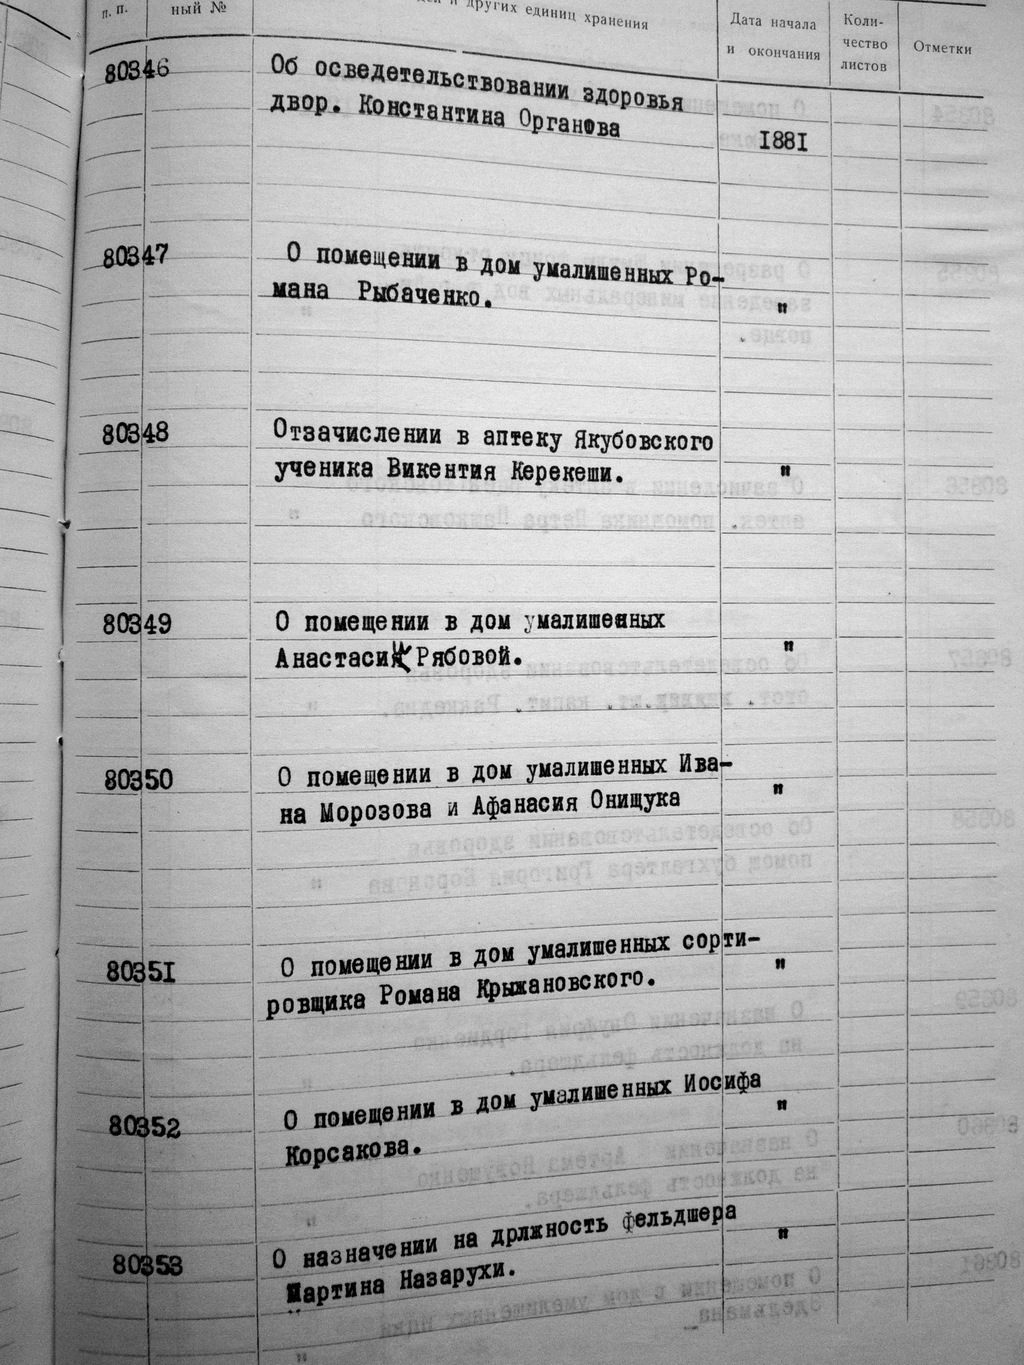 п. п.
ный №
и других единиц хранения
Дата начала
и окончания
Коли-
чество
листов
Отметки
80346
Об осведетельствовании здоровья
двор. Константина Органова
1881
80347
О помещении в дом умалишенных Ро-
мана Рыбаченко.
"
80348
Отзачислении в аптеку Якубовского
ученика Викентия Керекеши.
"
80349
О помещении в дом умалишенных
Анастасии Рябовой.
"
80350
О помещении в дом умалишенных Ива-
на Морозова и Афанасия Онищука
"
80351
О помещении в дом умалишенных сорти-
ровщика Романа Крыжановского.
"
80352
О помещении в дом умалишенных Иосифа
Корсакова.
"
80353
О назначении на дрлжность фельдшера
Мартина Назарухи.
"